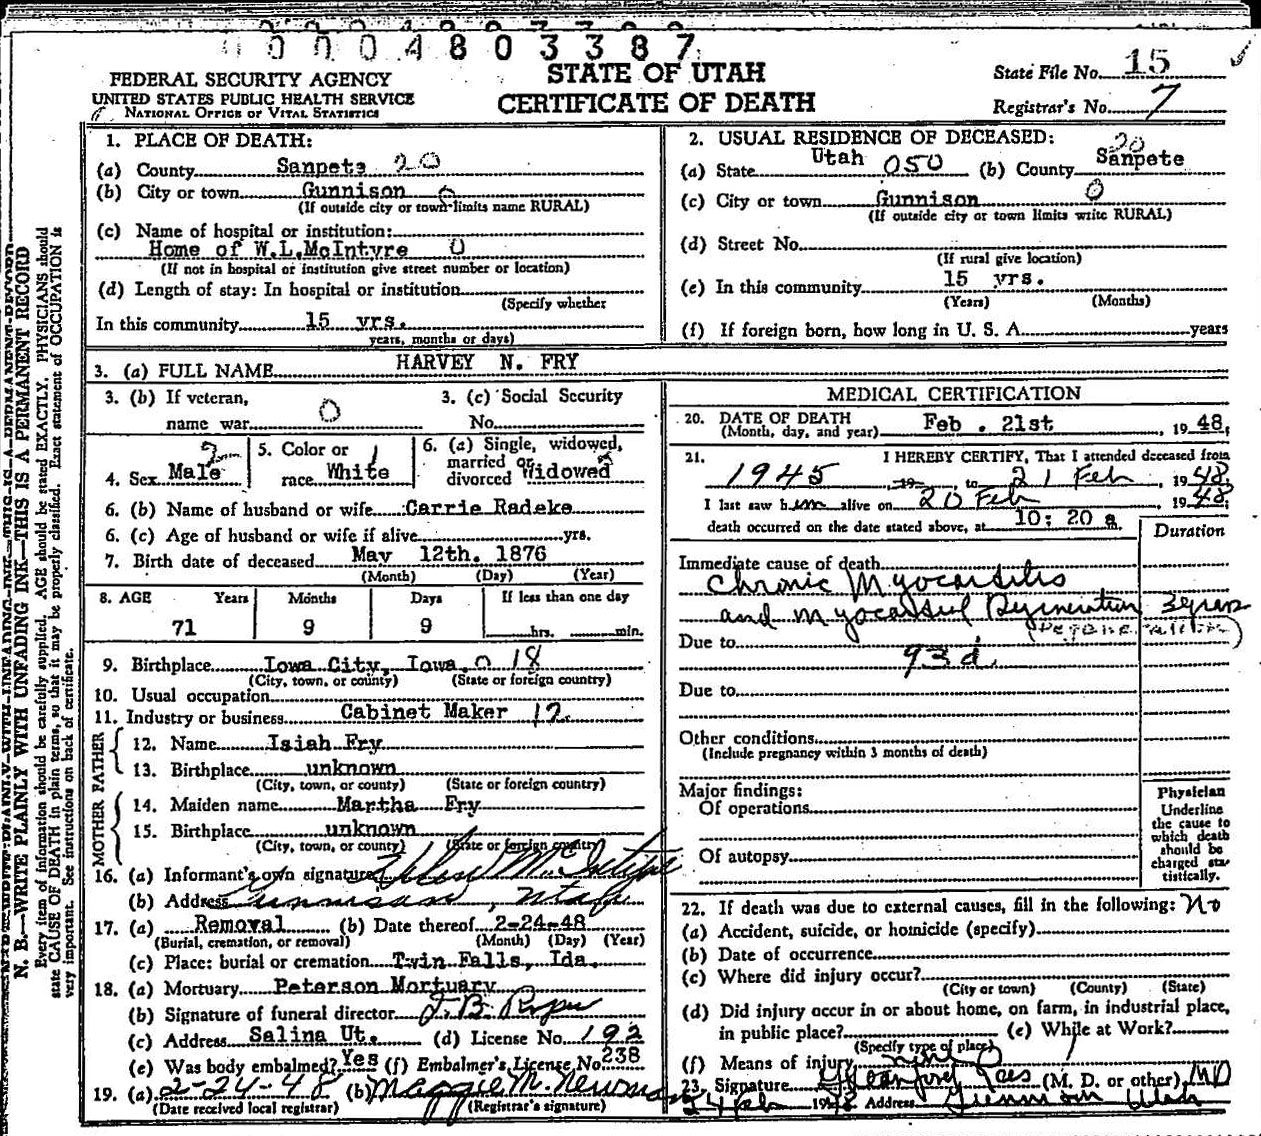 0 0 0 4 8 0 3 3 8 7
FEDERAL SECURITY AGENCY
UNITED STATES PUBLIC HEALTH SERVICE
NATIONAL OFFICE OF VITAL STATISTICS
STATE OF UTAH
CERTIFICATE OF DEATH
State File No. 15
Registrar's No. 7
1. PLACE OF DEATH:
(a) County Sanpete 20
(b) City or town Gunnison 0
(If outside city or town limits name RURAL)
(c) Name of hospital or institution:
Home of W.L.McIntyre 0
(If not in hospital or institution give street number or location)
(d) Length of stay: In hospital or institution
(Specify whether
In this community 15 yrs.
years, months or days)
2. USUAL RESIDENCE OF DECEASED:
(a) State Utah 050 (b) County Sanpete 20
(c) City or town Gunnison 0
(If outside city or town limits write RURAL)
(d) Street No.
(If rural give location)
(e) In this community 15 yrs.
(Years) (Months)
(f) If foreign born, how long in U. S. A. years
3. (a) FULL NAME HARVEY N. FRY
3. (b) If veteran, name war 0
3. (c) Social Security No.
4. Sex Male
5. Color or race White 1
6. (a) Single, widowed, married or divorced Widowed
6. (b) Name of husband or wife Carrie Radeke
6. (c) Age of husband or wife if alive yrs.
7. Birth date of deceased May 12th. 1876
(Month) (Day) (Year)
8. AGE Years Months Days If less than one day
71 9 9 hrs. min.
9. Birthplace Iowa City, Iowa, 0 18
(City, town, or county) (State or foreign country)
10. Usual occupation
11. Industry or business Cabinet Maker 12
FATHER
12. Name Isiah Fry
13. Birthplace unknown
(City, town, or county) (State or foreign country)
MOTHER
14. Maiden name Martha Fry
15. Birthplace unknown
(City, town, or county) (State or foreign country)
16. (a) Informant's own signature McIntyre
(b) Address Gunnison, Utah
17. (a) Removal (b) Date thereof 2-24-48
(Burial, cremation, or removal) (Month) (Day) (Year)
(c) Place: burial or cremation Twin Falls, Ida.
18. (a) Mortuary Peterson Mortuary
(b) Signature of funeral director
(c) Address Salina Ut. (d) License No. 192
(e) Was body embalmed? Yes (f) Embalmer's License No. 238
19. (a) 2-24-48 (b) Maggie M. Newman
(Date received local registrar) (Registrar's signature)
MEDICAL CERTIFICATION
20. DATE OF DEATH Feb. 21st, 1948.
(Month, day, and year)
21. I HEREBY CERTIFY, That I attended deceased from
1945, 19 to 21 Feb, 1948.
I last saw him alive on 20 Feb 1948
death occurred on the date stated above, at 10: 20 a
Duration
Immediate cause of death
Chronic Myocarditis
and Myocardial Degeneration 3 years
(Degeneration)
Due to 93d
Due to
Other conditions
(Include pregnancy within 3 months of death)
Major findings:
Of operations
Of autopsy
Physician
Underline
the cause to
which death
should be
charged sta-
tistically.
22. If death was due to external causes, fill in the following: No
(a) Accident, suicide, or homicide (specify)
(b) Date of occurrence
(c) Where did injury occur?
(City or town) (County) (State)
(d) Did injury occur in or about home, on farm, in industrial place,
in public place? (e) While at Work?
(Specify type of place)
(f) Means of injury
23. Signature (M. D. or other) MD
24 Feb 1948 Address Gunnison Utah
N. B.—WRITE PLAINLY WITH UNFADING INK—THIS IS A PERMANENT RECORD
Every item of information should be carefully supplied. AGE should be stated EXACTLY. PHYSICIANS should
state CAUSE OF DEATH in plain terms, so that it may be properly classified. Exact statement of OCCUPATION is
very important. See instructions on back of certificate.